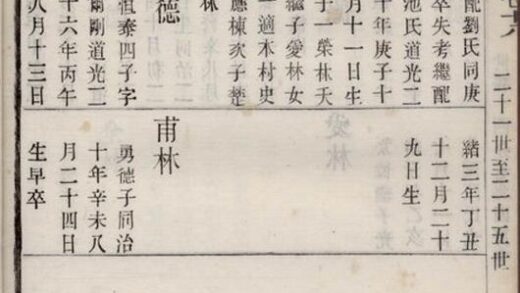 二十一世至二十五世
配劉氏同庚
卒失考繼配
池氏道光二
十年庚子十
月十一日生
子一榮林夭
繼子愛林女
一適本村史
應棟次子楚
林
德
祖泰四子字
爾剛道光二
十六年丙午
八月十三日
緒三年丁丑
十二月二十
九日生
甫林
勇德子同治
十年辛未八
月二十四日
生早卒